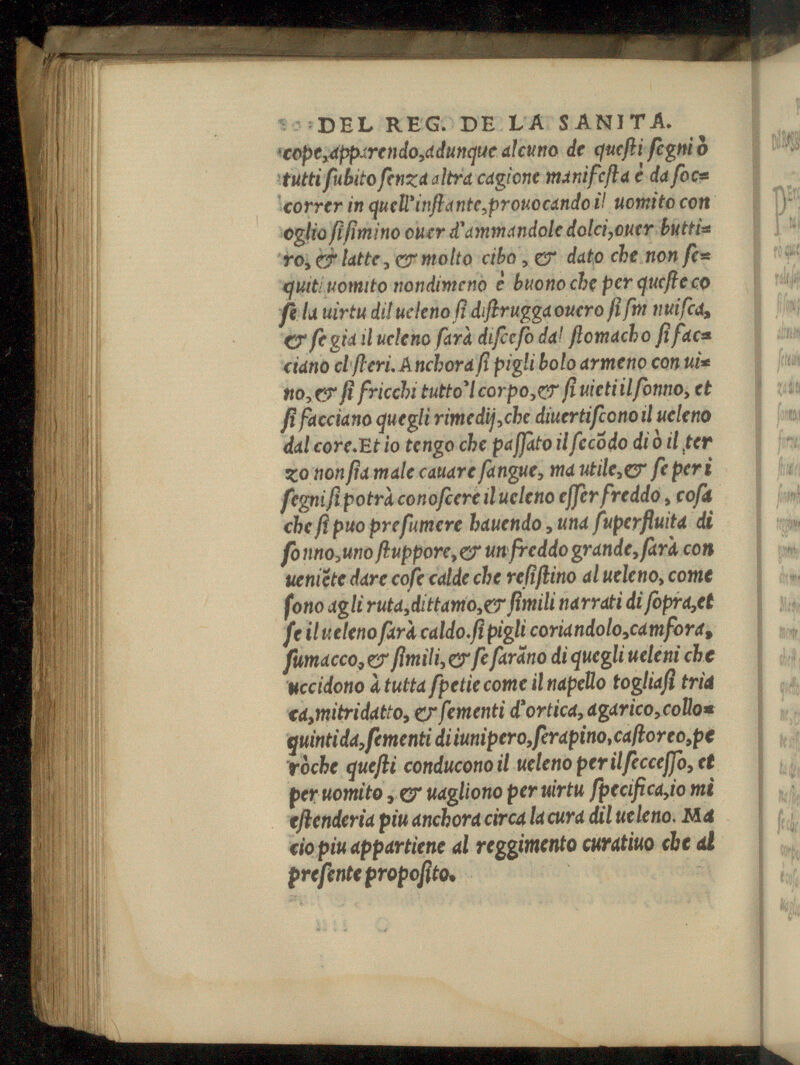 DEL REG. DE LA SANITA.
cope,apparendo,adunque alcuno de questi segni ò
tutti subito senza altra cagione manifesta è da soc=
correr in quell'instante,prouocando il uomito con
oglio sisimino ouer d'ammandole dolci,ouer butti=
ro, & latte, & molto cibo, & dato che non se=
quiti uomito nondimeno è buono che per queste co
se la uirtu dil ueleno si distrugga ouero si sm nuisca,
& se gia il ueleno sarà disceso dal stomacho si fac=
ciano cl steri. Anchora si pigli bolo armeno con ui=
no,& si fricchi tutto'l corpo,& si uieti il sonno, et
si facciano quegli rimedij,che diuertiscono il ueleno
dal core.Et io tengo che passato il secōdo di ò il ter
zo non sia male cauare sangue, ma utile,& se per i
segni si potrà conoscere il ueleno esser freddo, cosa
che si puo presumere hauendo, una superfluita di
sonno,uno stuppore,& un freddo grande, sarà con
ueniēte dare cose calde che resistino al ueleno, come
sono agli ruta,dittamo,& simili narrati di sopra,et
se il ueleno sarà caldo.si pigli coriandolo,camfora,
sumacco,& simili,& se sarāno di quegli ueleni che
uccidono à tutta spetie come il napello togliasi tria
ca,mitridatto, & sementi d'ortica, agarico,collo=
quintida,sementi di iunipero,serapino,castoreo,pe
ròche questi conducono il ueleno per il secesso, et
per uomito, & uagliono per uirtu specifica,io mi
estenderia piu anchora circa la cura dil ueleno. Ma
cio piu appartiene al reggimento curatiuo che al
presente proposito.